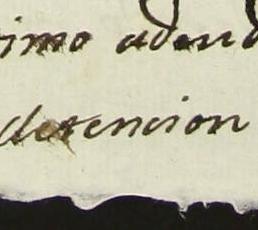 imo adend
detencion